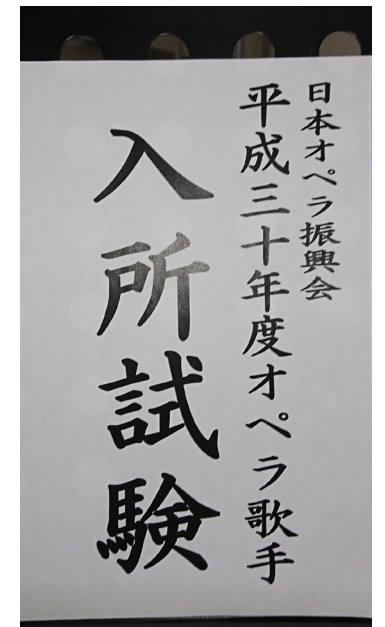 日本オペラ振興会
平成三十年度オペラ歌手
入所試験